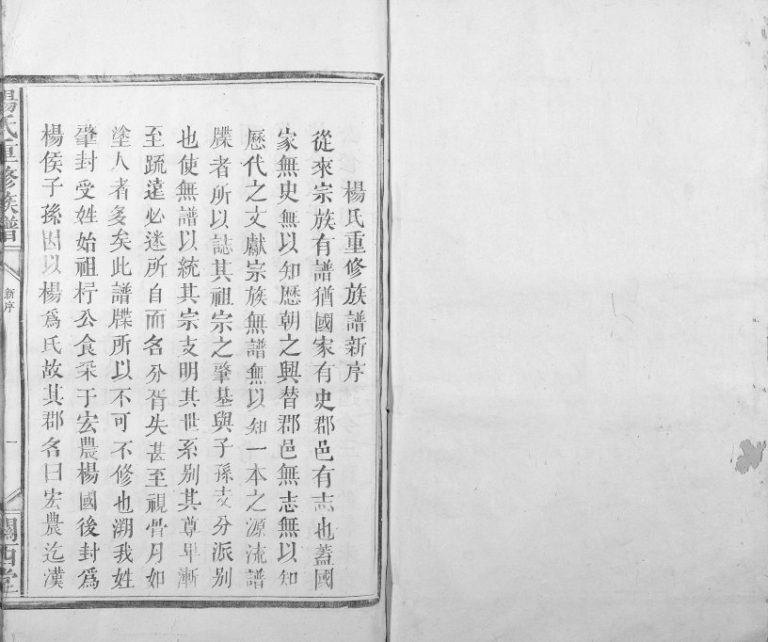 楊氏重修族譜新序
從來宗族有譜猶國家有史郡邑有志也蓋國
家無史無以知歷朝之興替郡邑無志無以知
歷代之文獻宗族無譜無以知一本之源流譜
牒者所以誌其祖宗之肇基與子孫支分派別
也使無譜以統其宗支明其世系別其尊卑漸
至疏遠必迷所自而名分胥失甚至視骨月如
塗人者多矣此譜牒所以不可不修也溯我姓
肇封受姓始祖杼公食采于宏農楊國後封爲
楊侯子孫因以楊爲氏故其郡名曰宏農迄漢
楊氏重修族譜
新序
一
關西堂